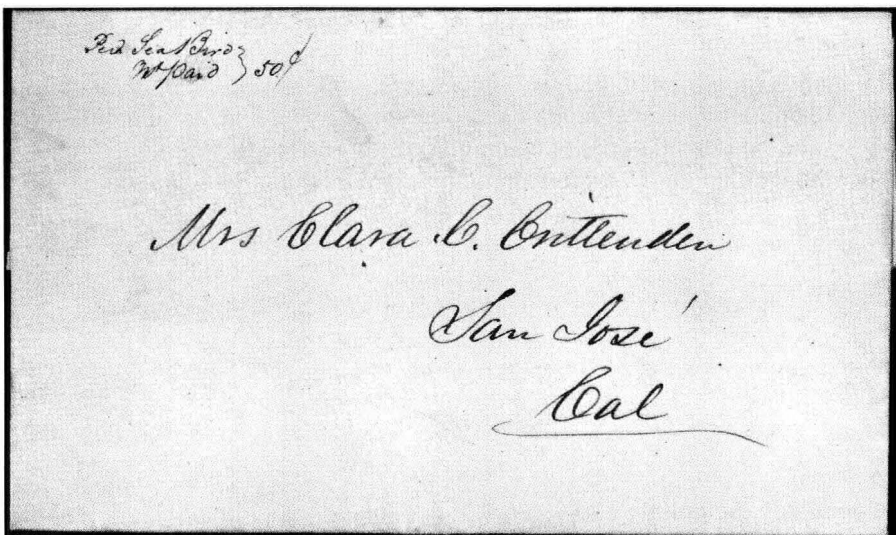 Per Sea Bird } 50¢
Pard
Mrs Clara C. Crittenden
San José
Cal